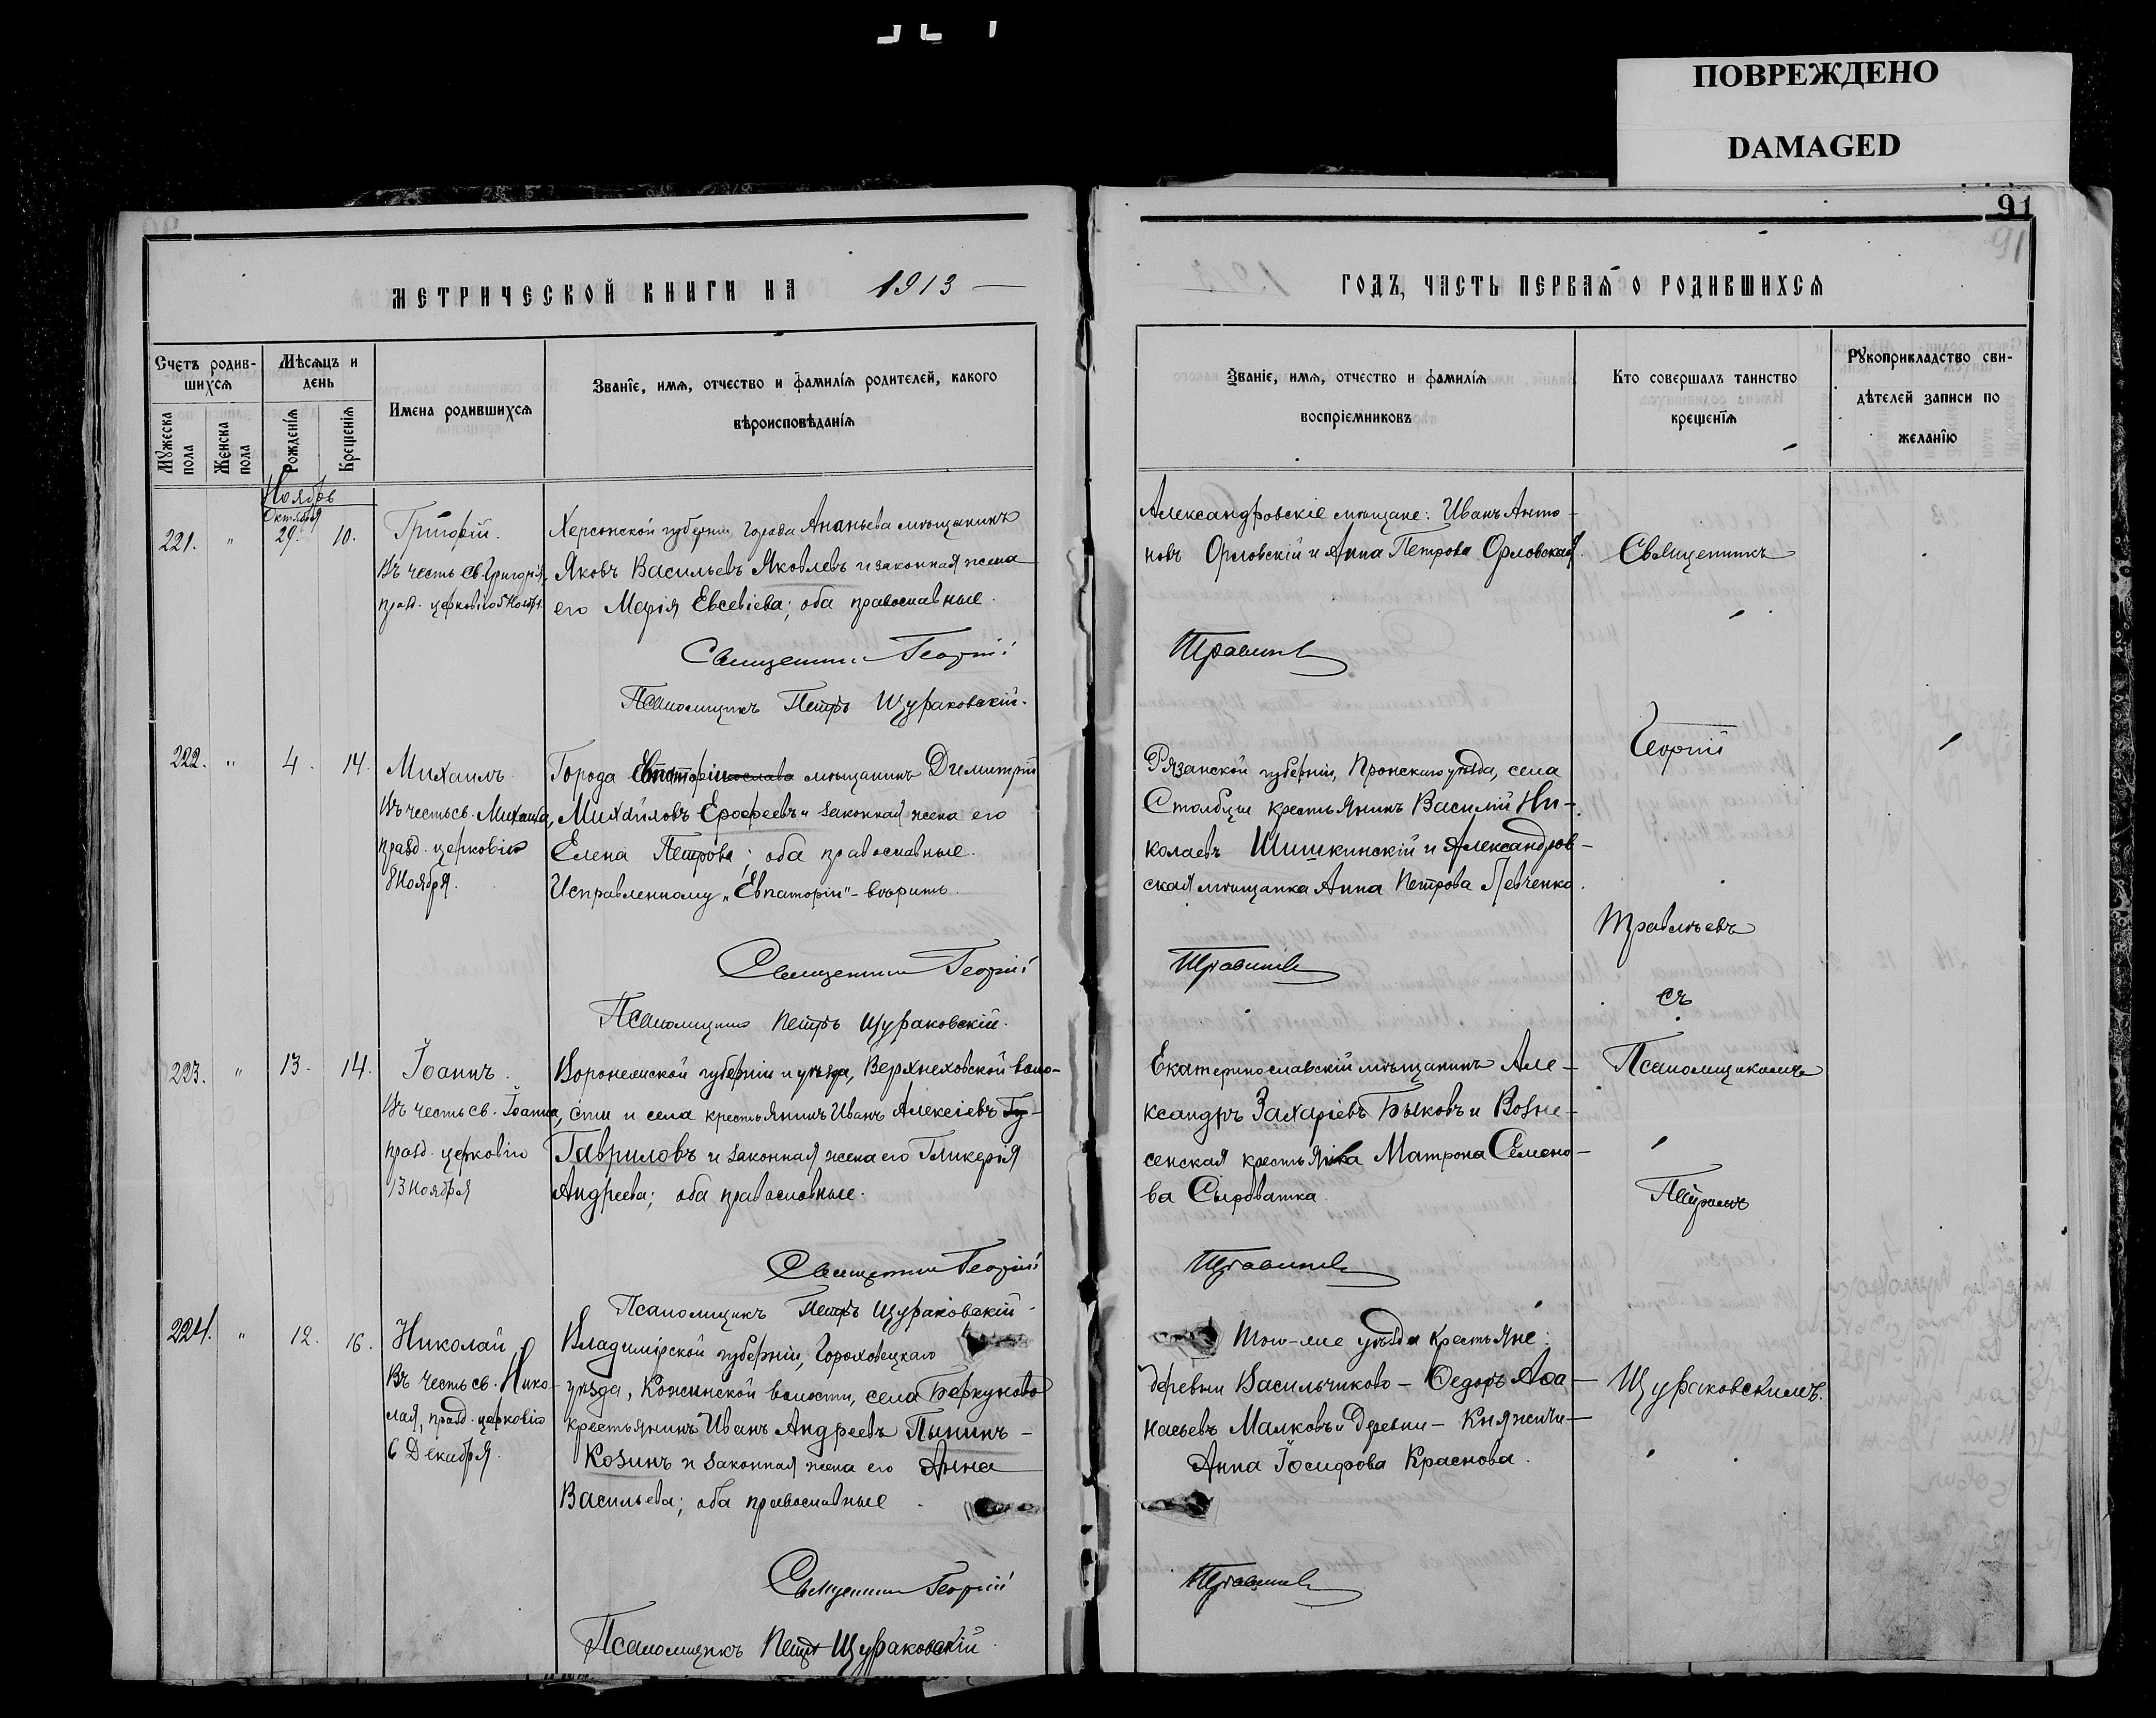 ПОВРЕЖДЕНО
DAMAGED
91
91
МЕТРИЧЕСКОЙ КНИГИ НА 1913
ГОДЪ, ЧАСТЬ ПЕРВАЯ О РОДИВШИХСЯ
Счетъ родив-
шихся
Мужеска пола
Женска пола
Мѣсяцъ и
день
Рожденія
Крещенія
Имена родившихся
Званіе, имя, отчество и фамилія родителей, какого
вѣроисповѣданія
Званіе, имя, отчество и фамилія
воспріемниковъ
Кто совершалъ таинство
крещенія
Рукоприкладство сви-
дѣтелей записи по
желанію
Ноябрь
Октября
221. " 29. 10.
Григорій.
Въ честь св. Григорія,
празд. церковію 5 Ноябр.
Херсонской губерніи города Ананьева мѣщанинъ
Яковъ Васильевъ Яковлевъ и законная жена
его Марія Евсевіева; оба православные.
Священникъ Георгій
Псаломщикъ Петръ Щураковскій.
Александровскіе мѣщане: Иванъ Анто-
новъ Орловскій и Анна Петрова Орловская.
222. " 4. 14.
Михаилъ.
Въ честь св. Михаила,
празд. церковію
8 Ноября.
Города Евпаторіи мѣщанинъ Димитрій
Михайловъ Ерофеевъ и законная жена его
Елена Петрова; оба православные.
Исправленному „Евпаторіи" - вѣрить.
Священникъ Георгій
Псаломщикъ Петръ Щураковскій.
Рязанской губерніи, Пронскаго уѣзда, села
Столбцы крестьянинъ Василій Ни-
колаевъ Шишкинскій и Александров-
ская мѣщанка Анна Петрова Левченко.
223. " 13. 14.
Іоаннъ.
Въ честь св. Іоанна,
празд. церковію
13 Ноября
Воронежской губерніи и уѣзда, Верхнеховской воло-
сти и села крестьянинъ Иванъ Алексіевъ
Гавриловъ и законная жена его Гликерія
Андреева; оба православные.
Священникъ Георгій
Псаломщикъ Петръ Щураковскій.
Екатеринославскій мѣщанинъ Але-
ксандръ Захаріевъ Быковъ и Возне-
сенская крестьянка Матрона Семено-
ва Сыроватка.
224. " 12. 16.
Николай
Въ честь св. Нико-
лая, празд. церковію
6 Декабря.
Владимірской губерніи, Гороховецкаго
уѣзда, Кожинской волости, села Беркуново
крестьянинъ Иванъ Андреевъ Пынинъ-
Козинъ и законная жена его Анна
Васильева; оба православные.
Священникъ Георгій
Псаломщикъ Петръ Щураковскій.
Того-же уѣзда крестьяне:
деревни Васильчиково - Ѳедоръ Аѳа-
насьевъ Малковъ и деревни - Княжичи-
Анна Іосифова Краснова.
Священникъ
Георгій
Травлѣевъ
съ
Псаломщикомъ
Петромъ
Щураковскимъ.